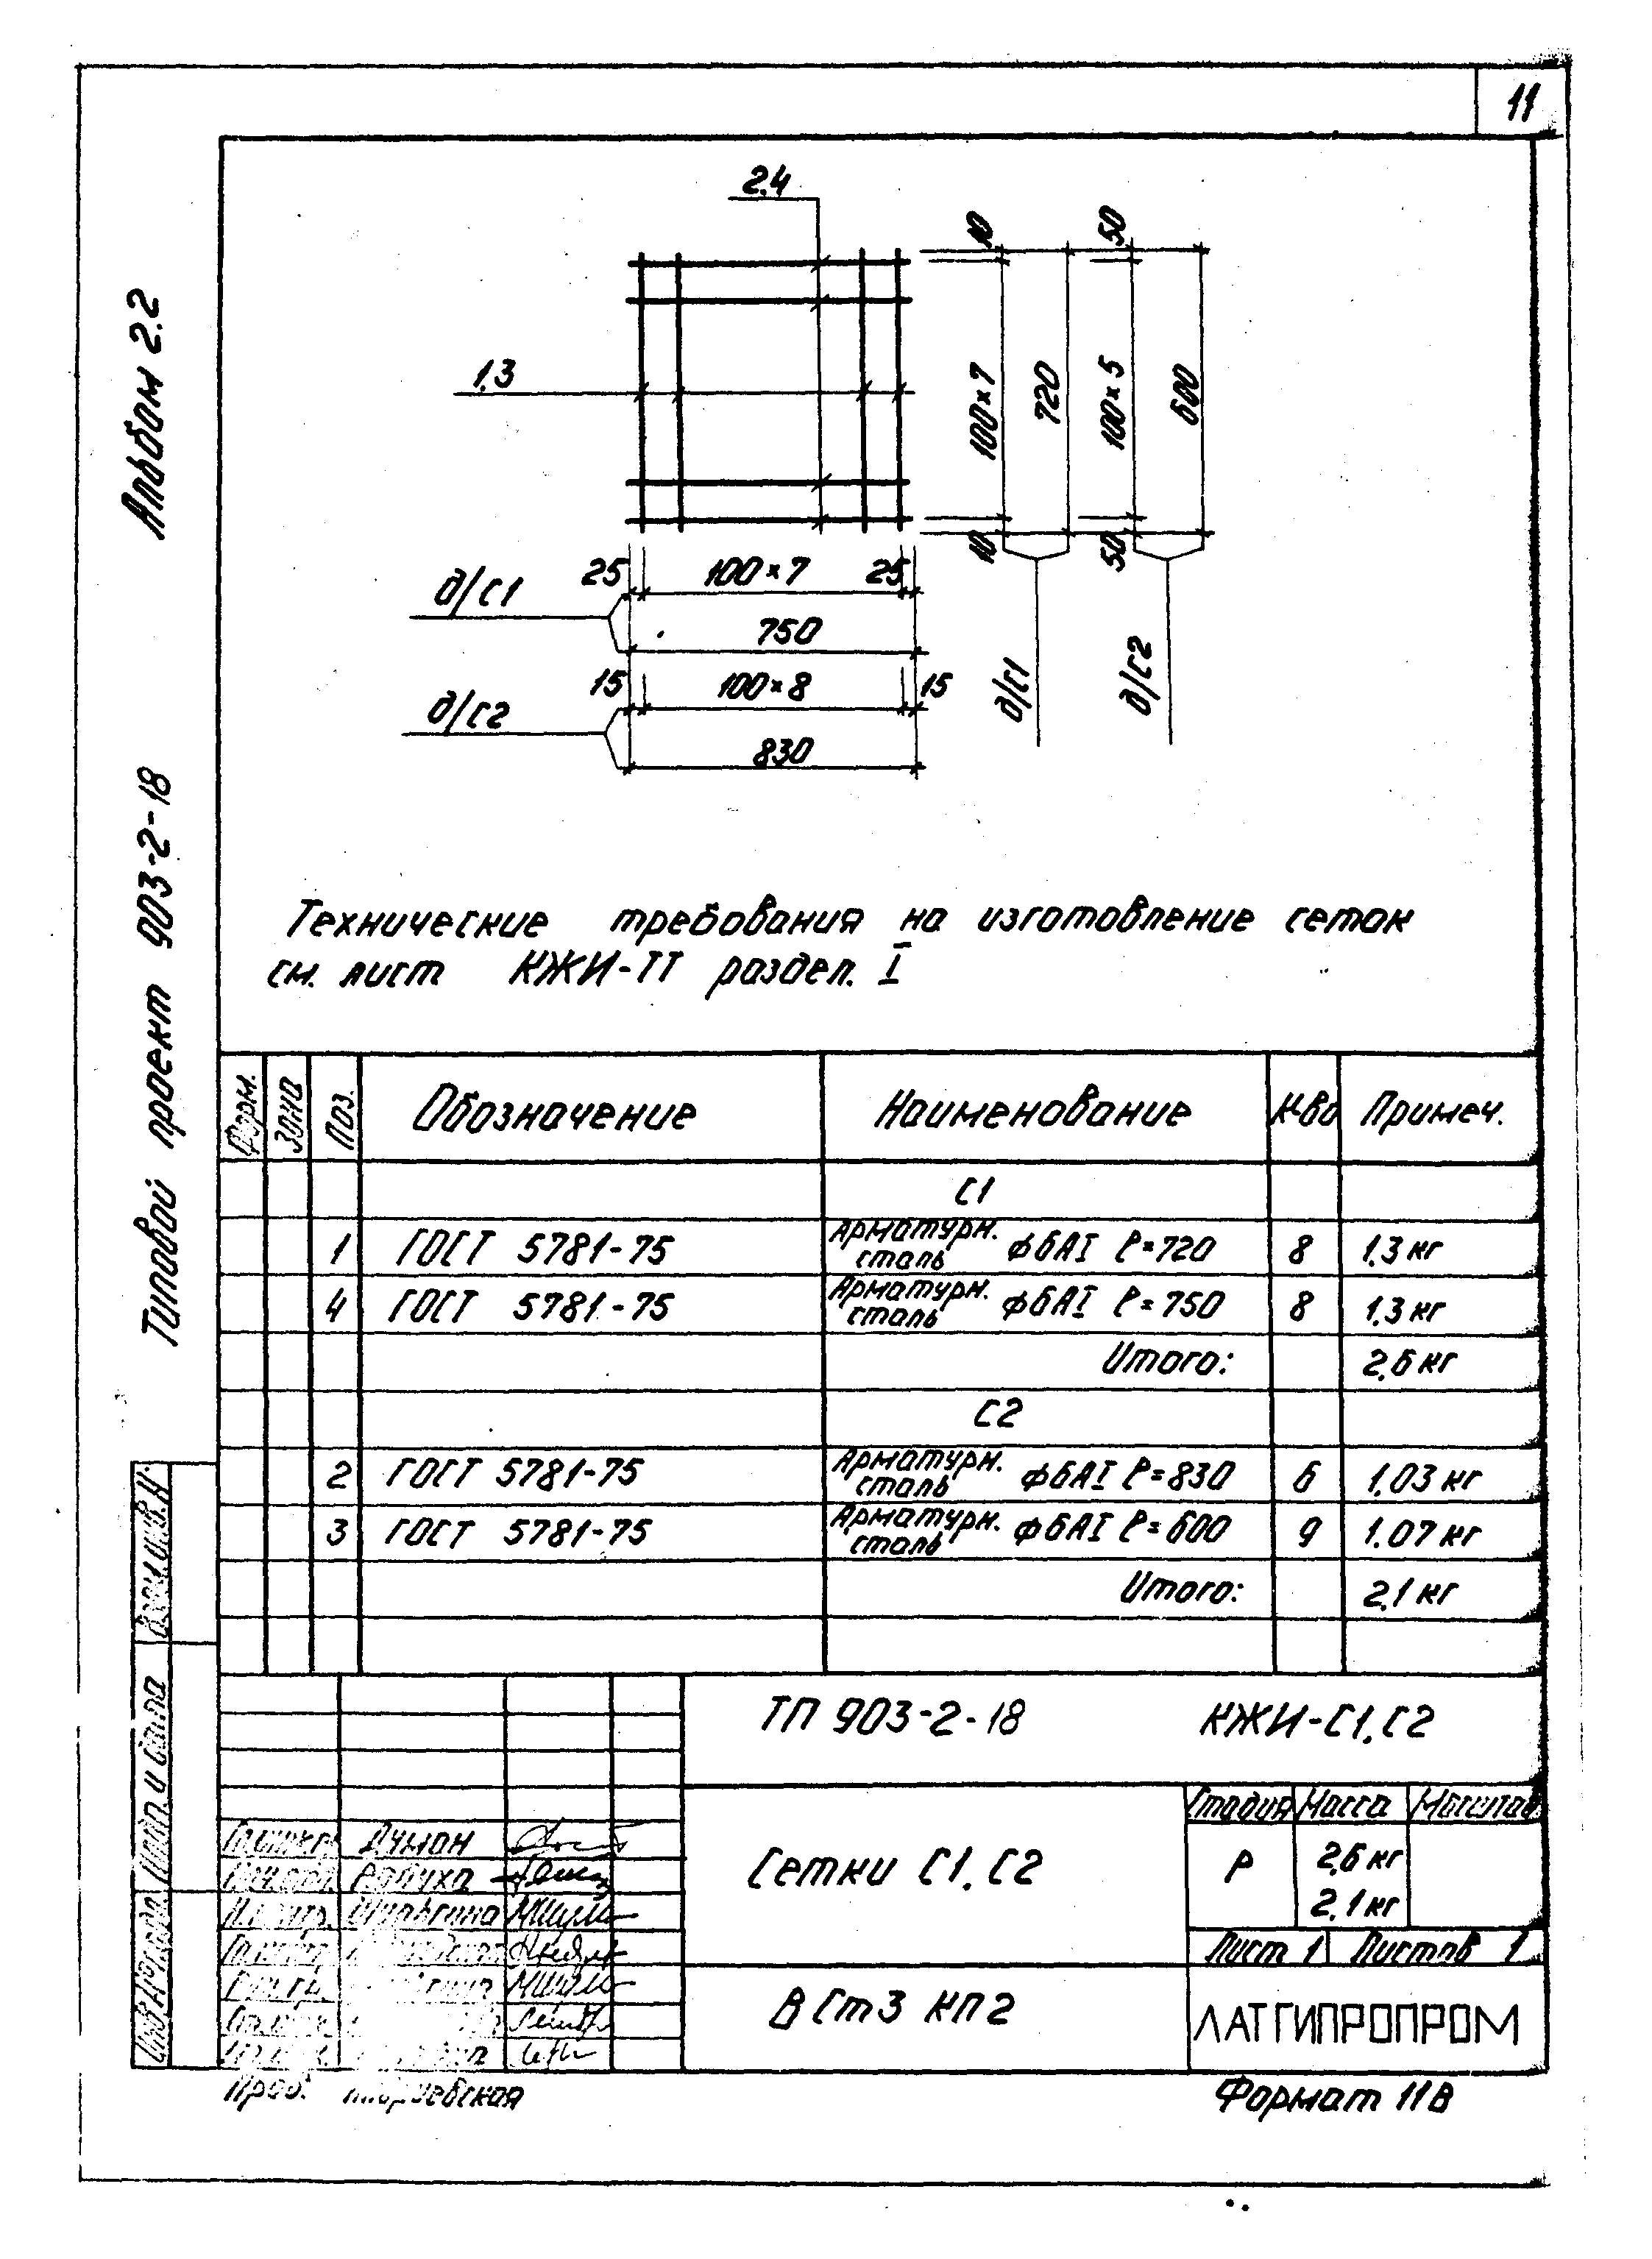 11
Альбом 2.2
Типовой проект 903-2-18
2,4
1,3
10
100×7
10
720
50
100×5
50
600
д/С1
д/С2
д/С1
25
100×7
25
750
д/С2
15
100×8
15
830
Технические требования на изготовление сеток
см. лист КЖИ-ТТ раздел. I
Форм. Зона Поз. Обозначение Наименование К-во Примеч.
С1
1 ГОСТ 5781-75 Арматурн. сталь ф6АI ℓ=720 8 1,3 кг
4 ГОСТ 5781-75 Арматурн. сталь ф6АI ℓ=750 8 1,3 кг
Итого: 2,6 кг
С2
2 ГОСТ 5781-75 Арматурн. сталь ф6АI ℓ=830 6 1,03 кг
3 ГОСТ 5781-75 Арматурн. сталь ф6АI ℓ=600 9 1,07 кг
Итого: 2,1 кг
Взам.инв.N
Подп. и дата
Инв.N подл.
ТП 903-2-18 КЖИ-С1,С2
Сетки С1,С2
Стадия Масса Масштаб
Р 2,6 кг
2,1 кг
Лист 1 Листов 1
В Ст3 КП2
ЛАТГИПРОПРОМ
Думан
Н.контр. Шулыгина
Пров.
Формат 11В